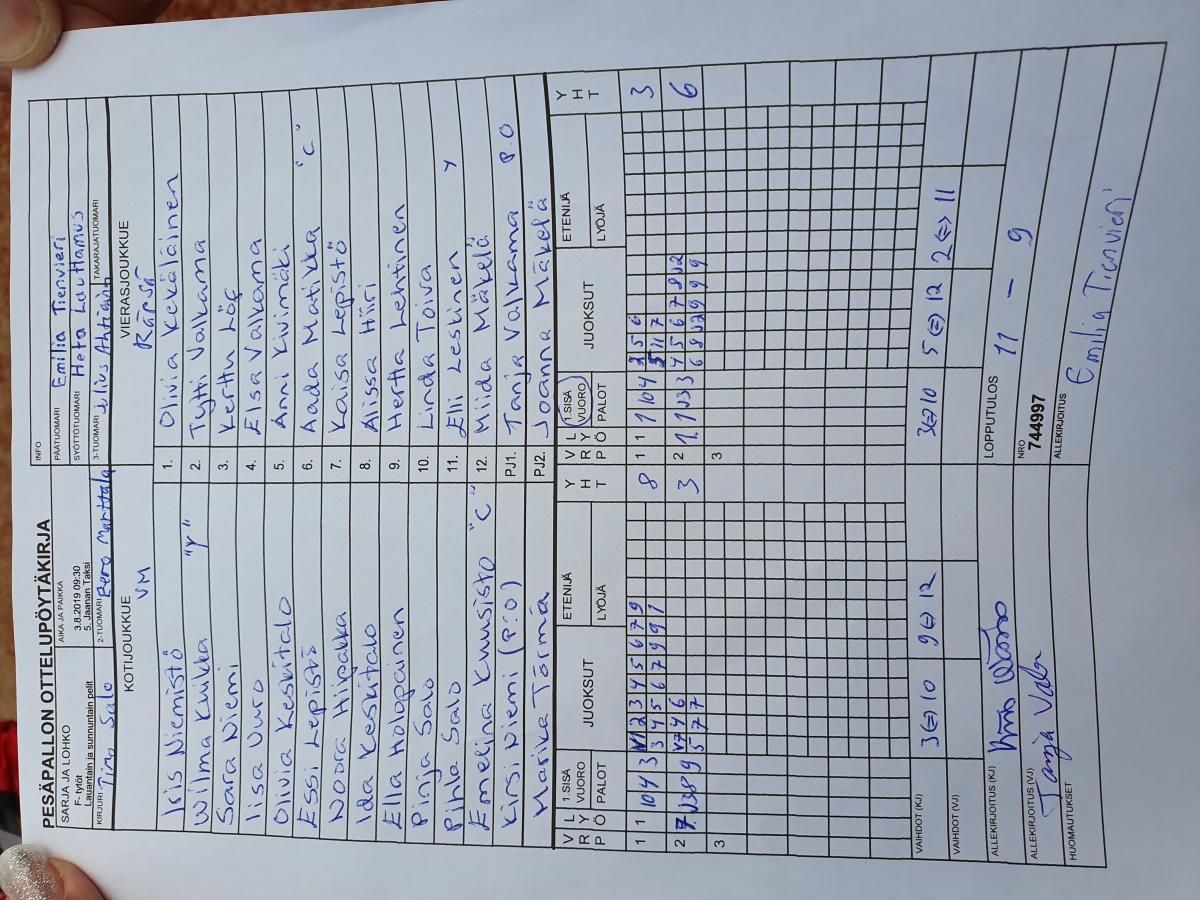 PESÄPALLON OTTELUPÖYTÄKIRJA
INFO
SARJA JA LOHKO
F- tytöt
Lauantain ja sunnuntain pelit
AIKA JA PAIKKA
3.8.2019 09:30
5. Jaanan Taksi
PÄÄTUOMARI Emilia Tienvieri
SYÖTTÖTUOMARI Heta Lauhamus
KIRJURI Timo Salo
2-TUOMARI Eero Marttala
3-TUOMARI Ahtiainen
TAKARAJATUOMARI
KOTIJOUKKUE VM
VIERASJOUKKUE
Iris Niemistö 1. Olivia Kekäläinen
Wilma Kuikka "Y" 2. Tytti Valkama
Sara Niemi 3. Kerttu Löç
Iisa Vuro 4. Elsa Valkama
Olivia Keskitalo 5. Anni Kivimäki
Essi Lepistö 6. Aada Matikka "C"
Noora Hiipakka 7. Kaisa Lepistö
Ida Keskitalo 8. Alissa Hiiri
Ella Holopainen 9. Hertta Lehtinen
Pinja Salo 10. Linda Toiva
Pihla Salo 11. Elli Leskinen Y
Emelina Kuusisto "C" 12. Miida Mäkelä
Kirsi Niemi (P:O) PJ1. Tanja Valkama P.O
Marika Törmä PJ2. Joanna Mäkelä
V R P L Y Ö 1.SISÄ VUORO PALOT JUOKSUT ETENIJÄ LYÖJÄ Y H T V R P L Y Ö 1.SISÄ VUORO PALOT JUOKSUT ETENIJÄ LYÖJÄ Y H T
1 1 10 4 3 2 3 4 5 6 7 9 8 1 1 1 10 4 5 6 3
3 4 5 6 7 9 9 1 11 7
2 7 8 9 4 6 3 2 1 3 3 4 5 6 7 8 12 6
5 7 7 6 8 12 9 9 9
3 3
VAIHDOT (KJ) 3<=>10 9<=>12 3<=>10 5<=>12 2<=>11
VAIHDOT (VJ)
ALLEKIRJOITUS (KJ)
LOPPUTULOS 11 - 9
ALLEKIRJOITUS (VJ) Tanja Valk
NRO
744997
HUOMAUTUKSET
ALLEKIRJOITUS Emilia Tienvieri